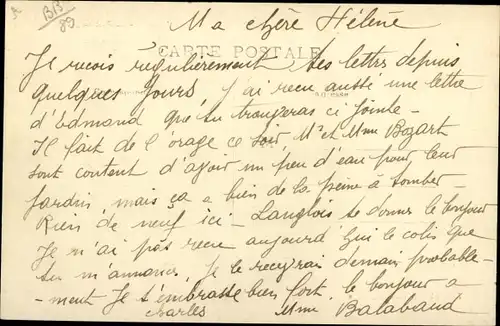 BB
89
Ma chère Hélène
CARTE POSTALE
Je reçois régulièrement tes lettres depuis
quelques jours j'ai reçu aussi une lettre
d'Edmond que tu trouveras ci jointe -
Il fait de l'orage ce soir Mr et Mme Bozart
sont content d'avoir un peu d'eau pour leur
jardin mais ça a bien de la peine à tomber -
Rien de neuf ici - Langlois te donne le bonjour
Je n'ai pas reçu aujourd hui le colis que
tu m'annonces, Je le recevrai demain probable-
- ment Je t'embrasse bien fort, le bonjour a
Charles Mme Balabaud